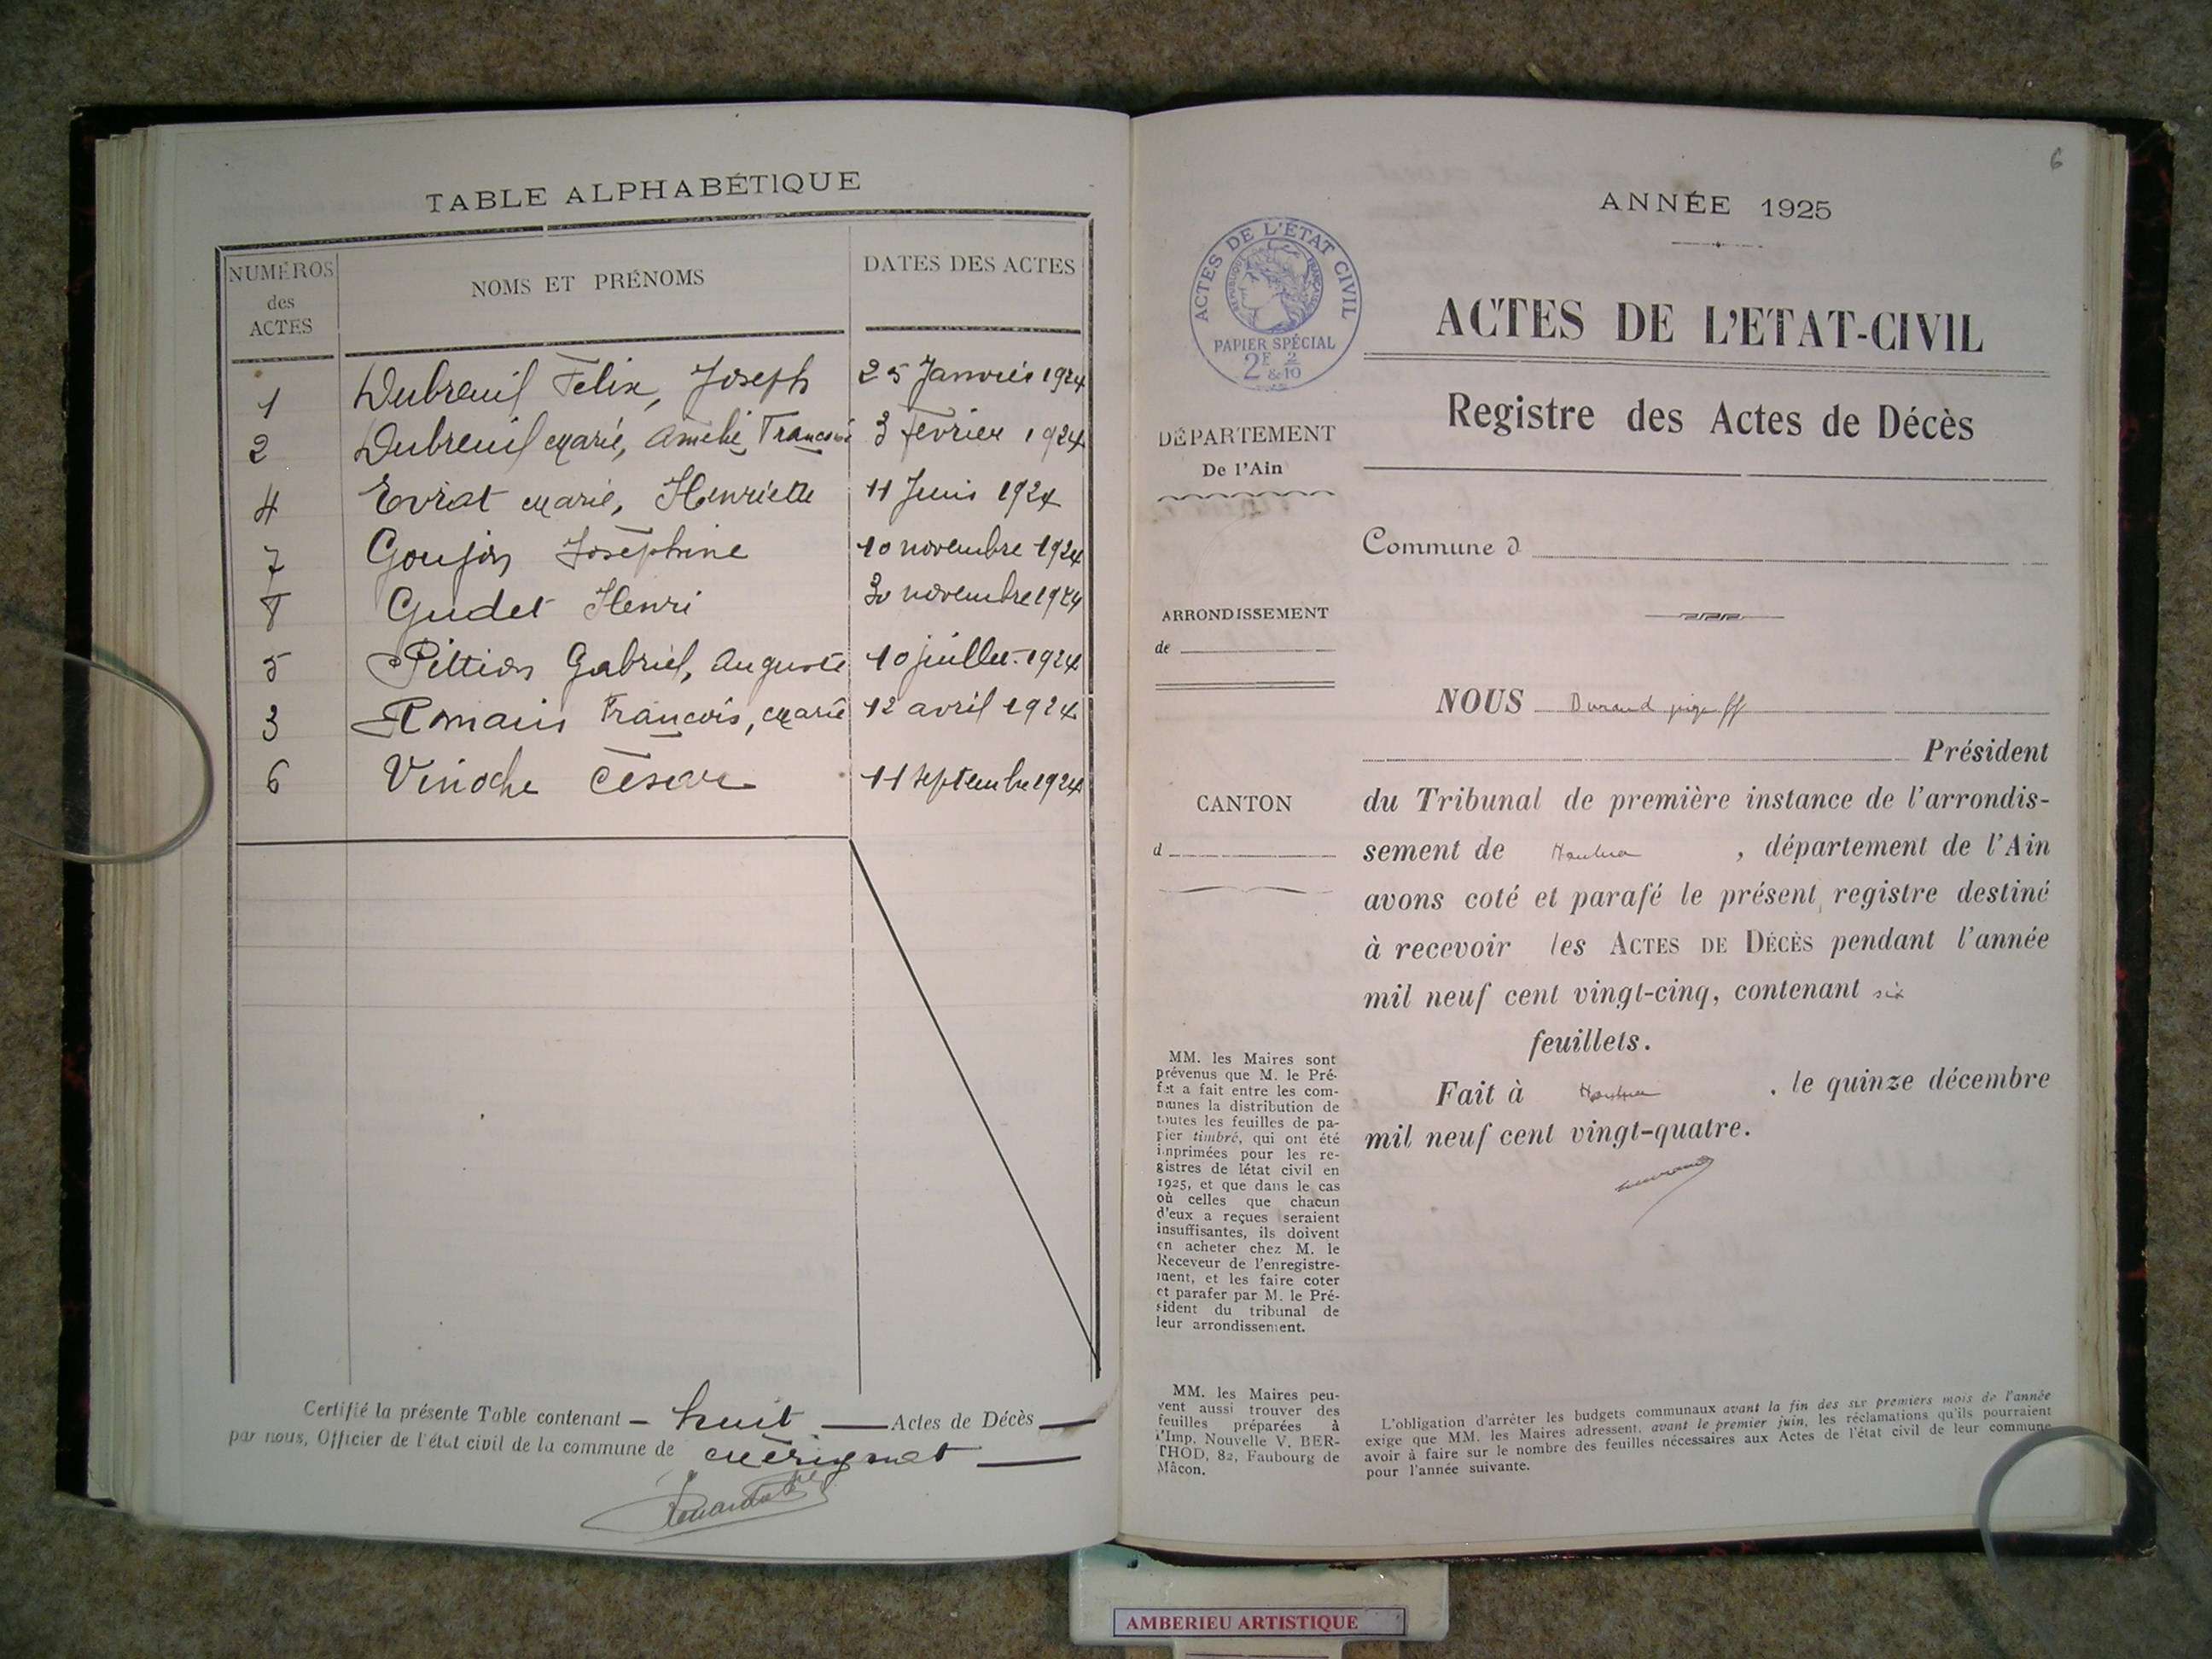 TABLE ALPHABÉTIQUE
NUMÉROS
des
ACTES
NOMS ET PRÉNOMS
DATES DES ACTES
1 Dubreuil Felix, Joseph 25 Janvier 1924
2 Dubreuil Marie, Amelie 3 Fevrier 1924
4 Evrat Marie, Henriette 11 Juin 1924
7 Goujon Joséphine 10 novembre 1924
8 Gudet Henri 30 novembre 1924
5 Pittion Gabriel, Auguste 10 juillet 1924
3 Romain François, Marie 12 avril 1924
6 Vinoche César 11 septembre 1924
Certifié la présente Table contenant huit Actes de Décès
par nous, Officier de l'état civil de la commune de Mérignat
6
ANNÉE 1925
ACTES DE L'ÉTAT CIVIL
RÉPUBLIQUE FRANÇAISE
PAPIER SPÉCIAL
2F & 2/10
ACTES DE L'ETAT-CIVIL
Registre des Actes de Décès
DÉPARTEMENT
De l'Ain
Commune d
ARRONDISSEMENT
de
NOUS Durand
Président
CANTON
d
du Tribunal de première instance de l'arrondis-
sement de , département de l'Ain
avons coté et parafé le présent registre destiné
à recevoir les ACTES DE DÉCÈS pendant l'année
mil neuf cent vingt-cinq, contenant six
feuillets.
Fait à , le quinze décembre
mil neuf cent vingt-quatre.
MM. les Maires sont
prévenus que M. le Pré-
fet a fait entre les com-
munes la distribution de
toutes les feuilles de pa-
pier timbré, qui ont été
imprimées pour les re-
gistres de létat civil en
1925, et que dans le cas
où celles que chacun
d'eux a reçues seraient
insuffisantes, ils doivent
en acheter chez M. le
Receveur de l'enregistre-
ment, et les faire coter
et parafer par M. le Pré-
sident du tribunal de
leur arrondissement.
MM. les Maires peu-
vent aussi trouver des
feuilles préparées à
l'Imp. Nouvelle V. BER-
THOD, 82, Faubourg de
Mâcon.
L'obligation d'arrêter les budgets communaux avant la fin des six premiers mois de l'année
exige que MM. les Maires adressent, avant le premier juin, les réclamations qu'ils pourraient
avoir à faire sur le nombre des feuilles nécessaires aux Actes de l'état civil de leur commune
pour l'année suivante.
AMBERIEU ARTISTIQUE